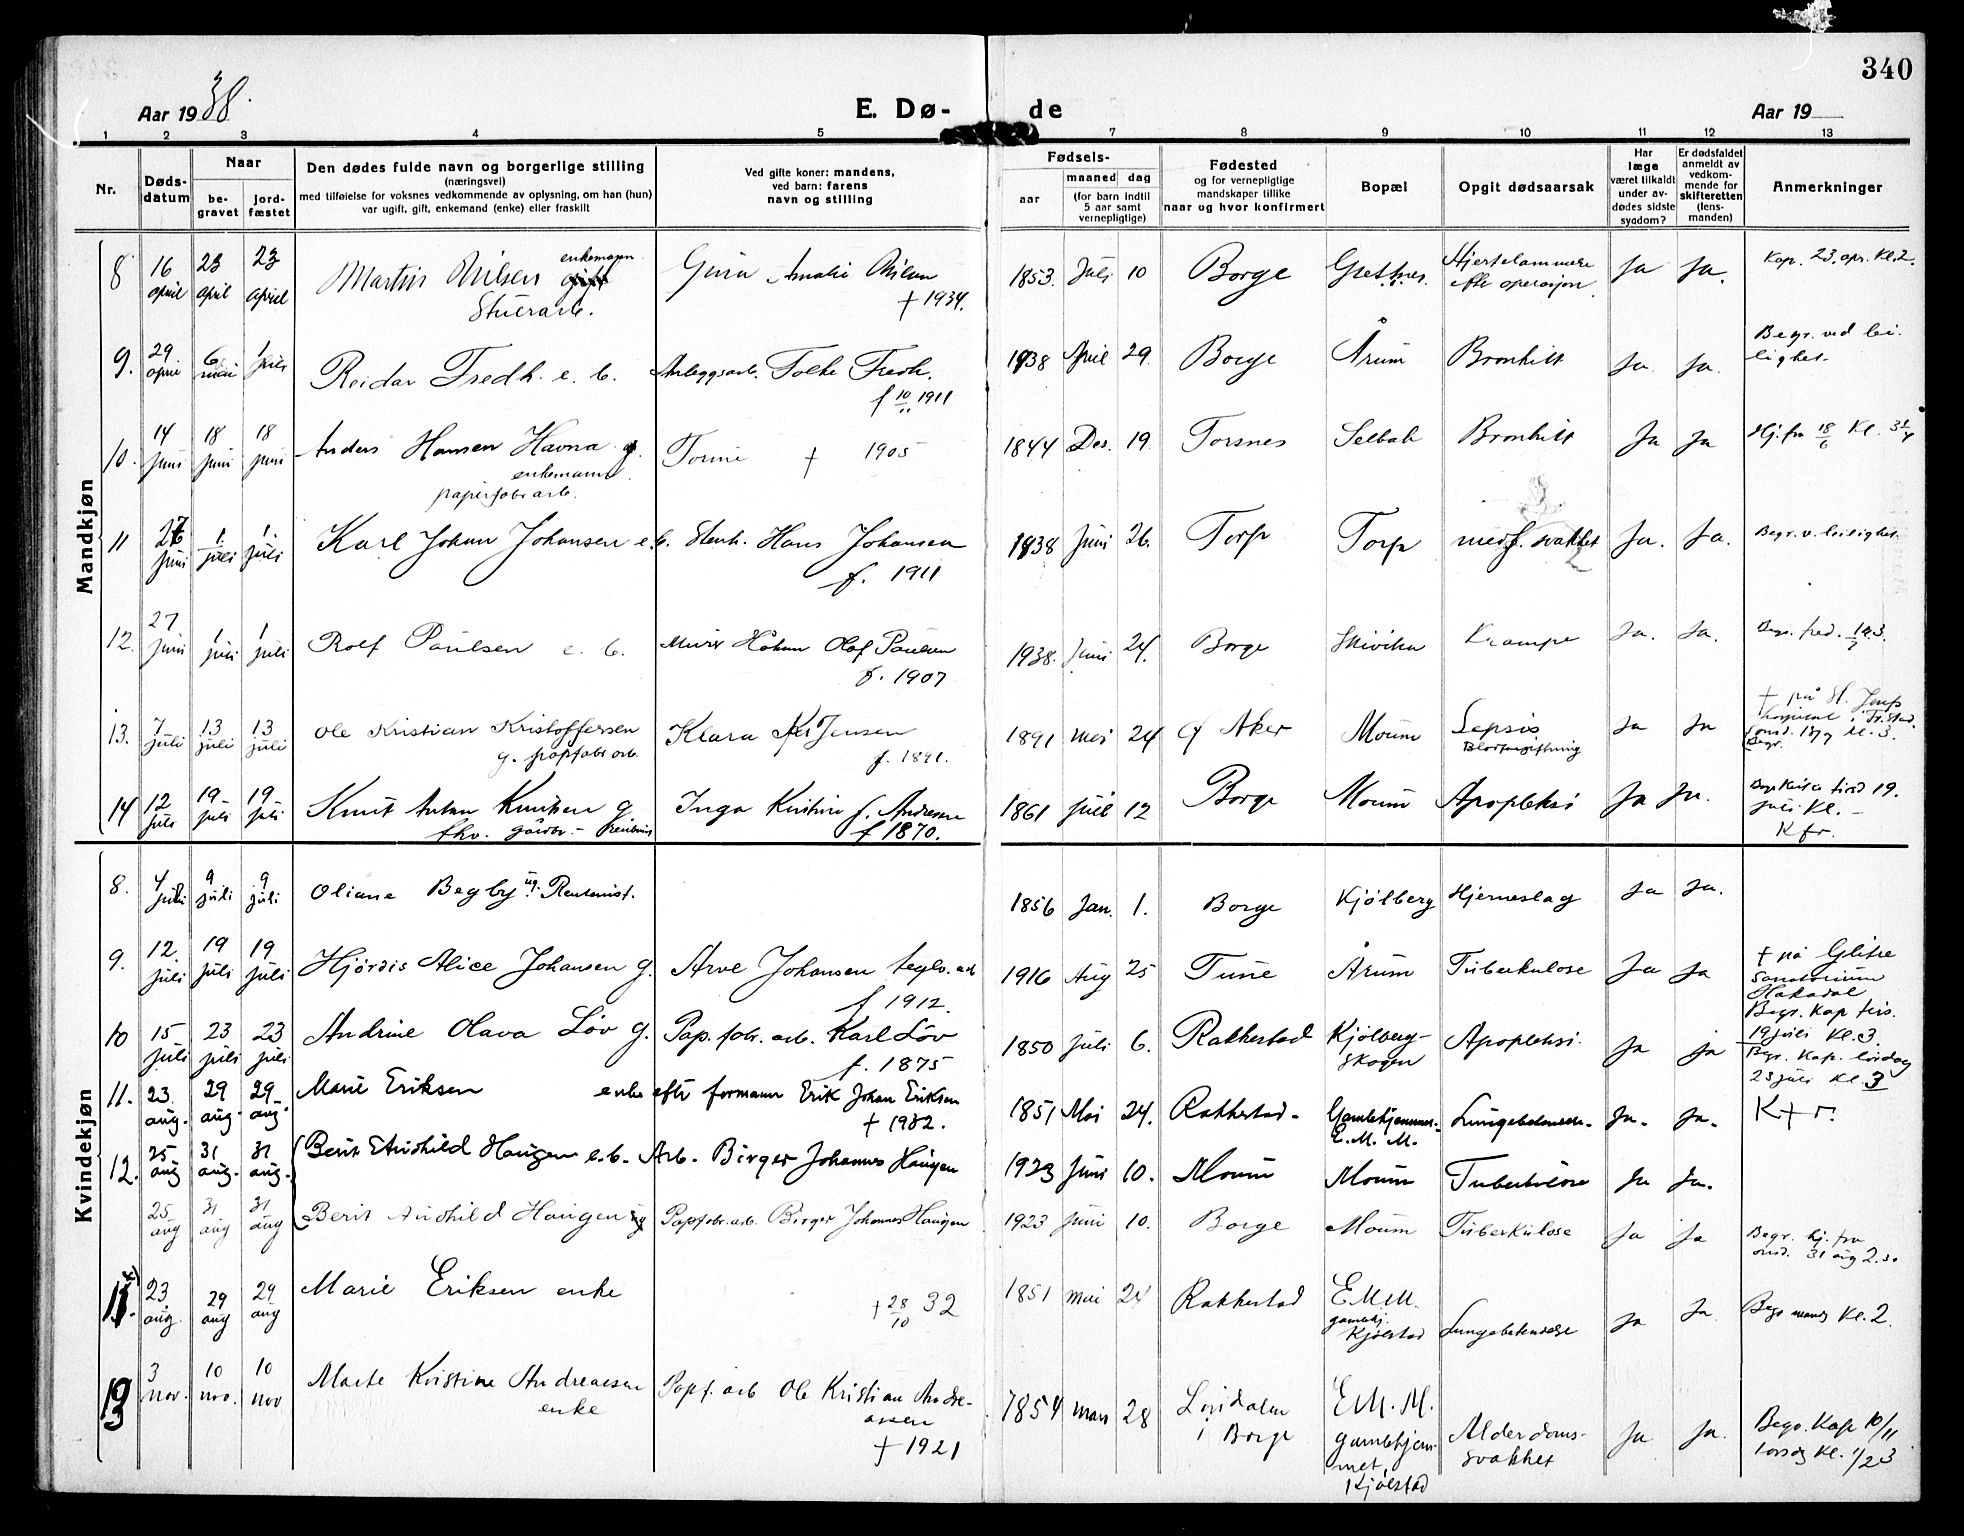 340
Aar 1938.
E. Dø-
de
Aar 19
1 2 3 4 5 7 8 9 10 11 12 13
Nr.
Døds-
datum
Naar
be-
gravet
jord-
fæstet
Den dødes fulde navn og borgerlige stilling
(næringsvei)
med tilføielse for voksnes vedkommende av oplysning, om han (hun)
var ugift, gift, enkemand (enke) eller fraskilt
Ved gifte koner: mandens,
ved barn: farens
navn og stilling
Fødsels-
aar
maaned dag
(for barn indtil
5 aar samt
vernepligtige)
Fødested
og for vernepligtige
mandskaper tillike
naar og hvor konfirmert
Bopæl
Opgit dødsaarsak
Har
læge
været tilkaldt
under av-
dødes sidste
sygdom?
Er dødsfaldet
anmeldt av
vedkom-
mende for
skifteretten
(lens-
manden)
Anmerkninger
Mandkjøn
8 16 april 23 april 23 april Martin Nilsen enkemann gift
Stuerarb.
Gina Amalie Nilsen
† 1934.
1853. Juli 10 Borge Grettnes. Hjertelammere
efter operasjon
Ja Ja. Kap. 23. apr. Kl. 2.
9. 29. april 6 mai 1 juli Reidar Fredh. e. b. Anleggsarb. Folke Fredh.
f 10/11 1911
1938 April 29. Borge Årum Bronkitt Ja. Ja. Begr. ved lei-
lighet.
10. 14 juni 18 juni 18 juni Anders Hansen Havna g.
enkemann.
papirfabr arb.
Tomine † 1905
1844 Des. 19. Torsnes Selbak Bronkitt Ja Ja Hj. fra 18/6 Kl. 3¼
11 27 juni 1. juli 1. juli Karl Johan Johansen e. b. Stenh. Hans Johansen
f. 1911
1938 Juni 26. Torp Torp medf. svakhet Ja. Ja. Begr. v. leilighet.
12. 27 juni 1 juli 1 juli Rolf Paulsen e. b. Murer Håkon Olaf Paulsen
f. 1907
1938. Juni 24. Borge Skivika Krampe Ja. Ja. Begr. fred. 1/7 Kl. 3.
13. 7 juli 13 juli 13 juli Ole Kristian Kristoffersen
g. papfabr arb.
Klara Jensen
f. 1891.
1891 mai 24 Aker Moum Sepsis
Blodforgiftning
Ja Ja † på St. Josefs
hospital i Fr.stad.
Begr. onsd. 13/7 kl. 3.
14 12 juli 19 juli 19 juli Knut Anton Knutsen g
fhv. gårdbr. - Rentenist
Inga Kristine f. Andresen
f 1870.
1861 juli 12 Borge Moum Apopleksi Ja Ja. tirsd 19.
juli Kl. -
K fr.
Kvindekjøn
8. 4 juli 9 juli 9 juli Oliane Begby ug. Rentenist.
1856 Jan. 1. Borge Kjølberg Hjerneslag Ja Ja.
9. 12. juli 19 juli 19 juli Hjørdis Alice Johansen g. Arve Johansen teglv. arb
f 1912.
1916 Aug 25 Tune Årum Tuberkulose Ja Ja † på Glitre
Sanatorium
Hakadal
Begr. Kap tirs.
19 juli Kl. 3.
10 15 juli 23 juli 23 juli Andrine Olava Löv g. Pap. fabr. arb. Karl Löv
f. 1875
1850 Juli 6. Rakkestad Kjølberg-
skogen
Apopleksi. Ja ja Begr. Kap. lördag
23 juli Kl. 3
11. 23. aug. 29 aug. 29 aug. Marie Eriksen enke efter formann Erik Johan Eriksen
† 1932.
1851 Mai 24. Rakkestad. Gamlehjemmet.
E. M. M.
Lungebetendelse. Ja. Ja. K + r.
12. 25 aug 31 aug. 31 aug. Berit Aushild Haugen e. b. Arb. Birger Johannes Haugen
1923 Juni 10. Moum Moum Tuberkulose Ja Ja.
25 aug 31 aug 31 aug Berit Aushild Haugen ug Papfabr. arb. Birger Johannes Haugen
1923 juni 10. Borge Moum Tuberkulose Ja Ja Begr. hj. fra
onsd. 31 aug 2.30
11. 23 aug. 29 aug 29 aug Marie Eriksen enke
† 28/10 32
1851 mai 24 Rakkestad E M. M.
gamlehj.
Kjølstad
Lungebetendelse Ja Ja. Begr mand Kl. 2.
13 3 nov. 10 nov. 10 nov Marte Kristine Andreassen
enke
Papf. arb Ole Kristian Andre-
assen
† 1921
1854 mars 28 Lövdalen
i Borge
E M. M.
gamlehjem-
met,
Kjølstad
Alderdoms-
svakhet
Ja Ja. Begr. Kap 10/11
torsdag Kl. 1/23